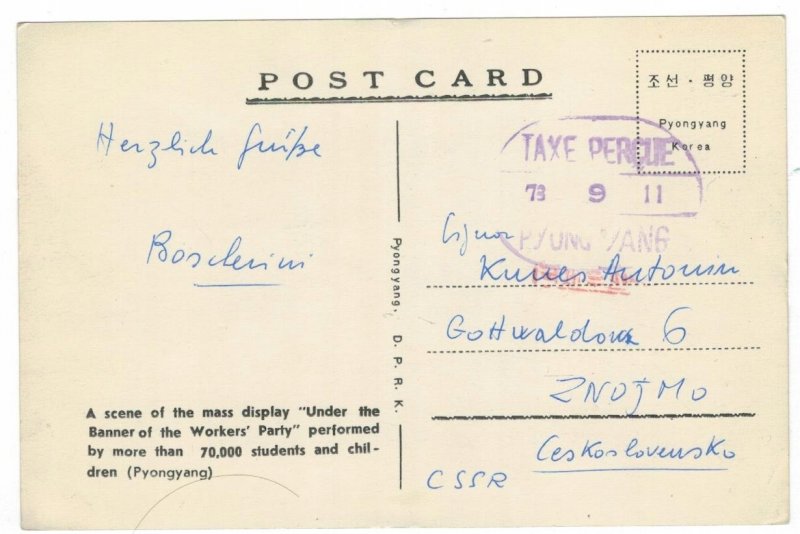 POST CARD
조선 · 평양
Pyongyang
Korea
TAXE PERÇUE
73 9 11
PYONG YANG
Herzlich Grüße
Boscherini
Signor
Kunes Antonin
Gottwaldova 6
ZNOJMO
Ceskoslovensko
CSSR
Pyongyang, D. P. R. K.
A scene of the mass display "Under the
Banner of the Workers' Party" performed
by more than 70,000 students and chil-
dren (Pyongyang)